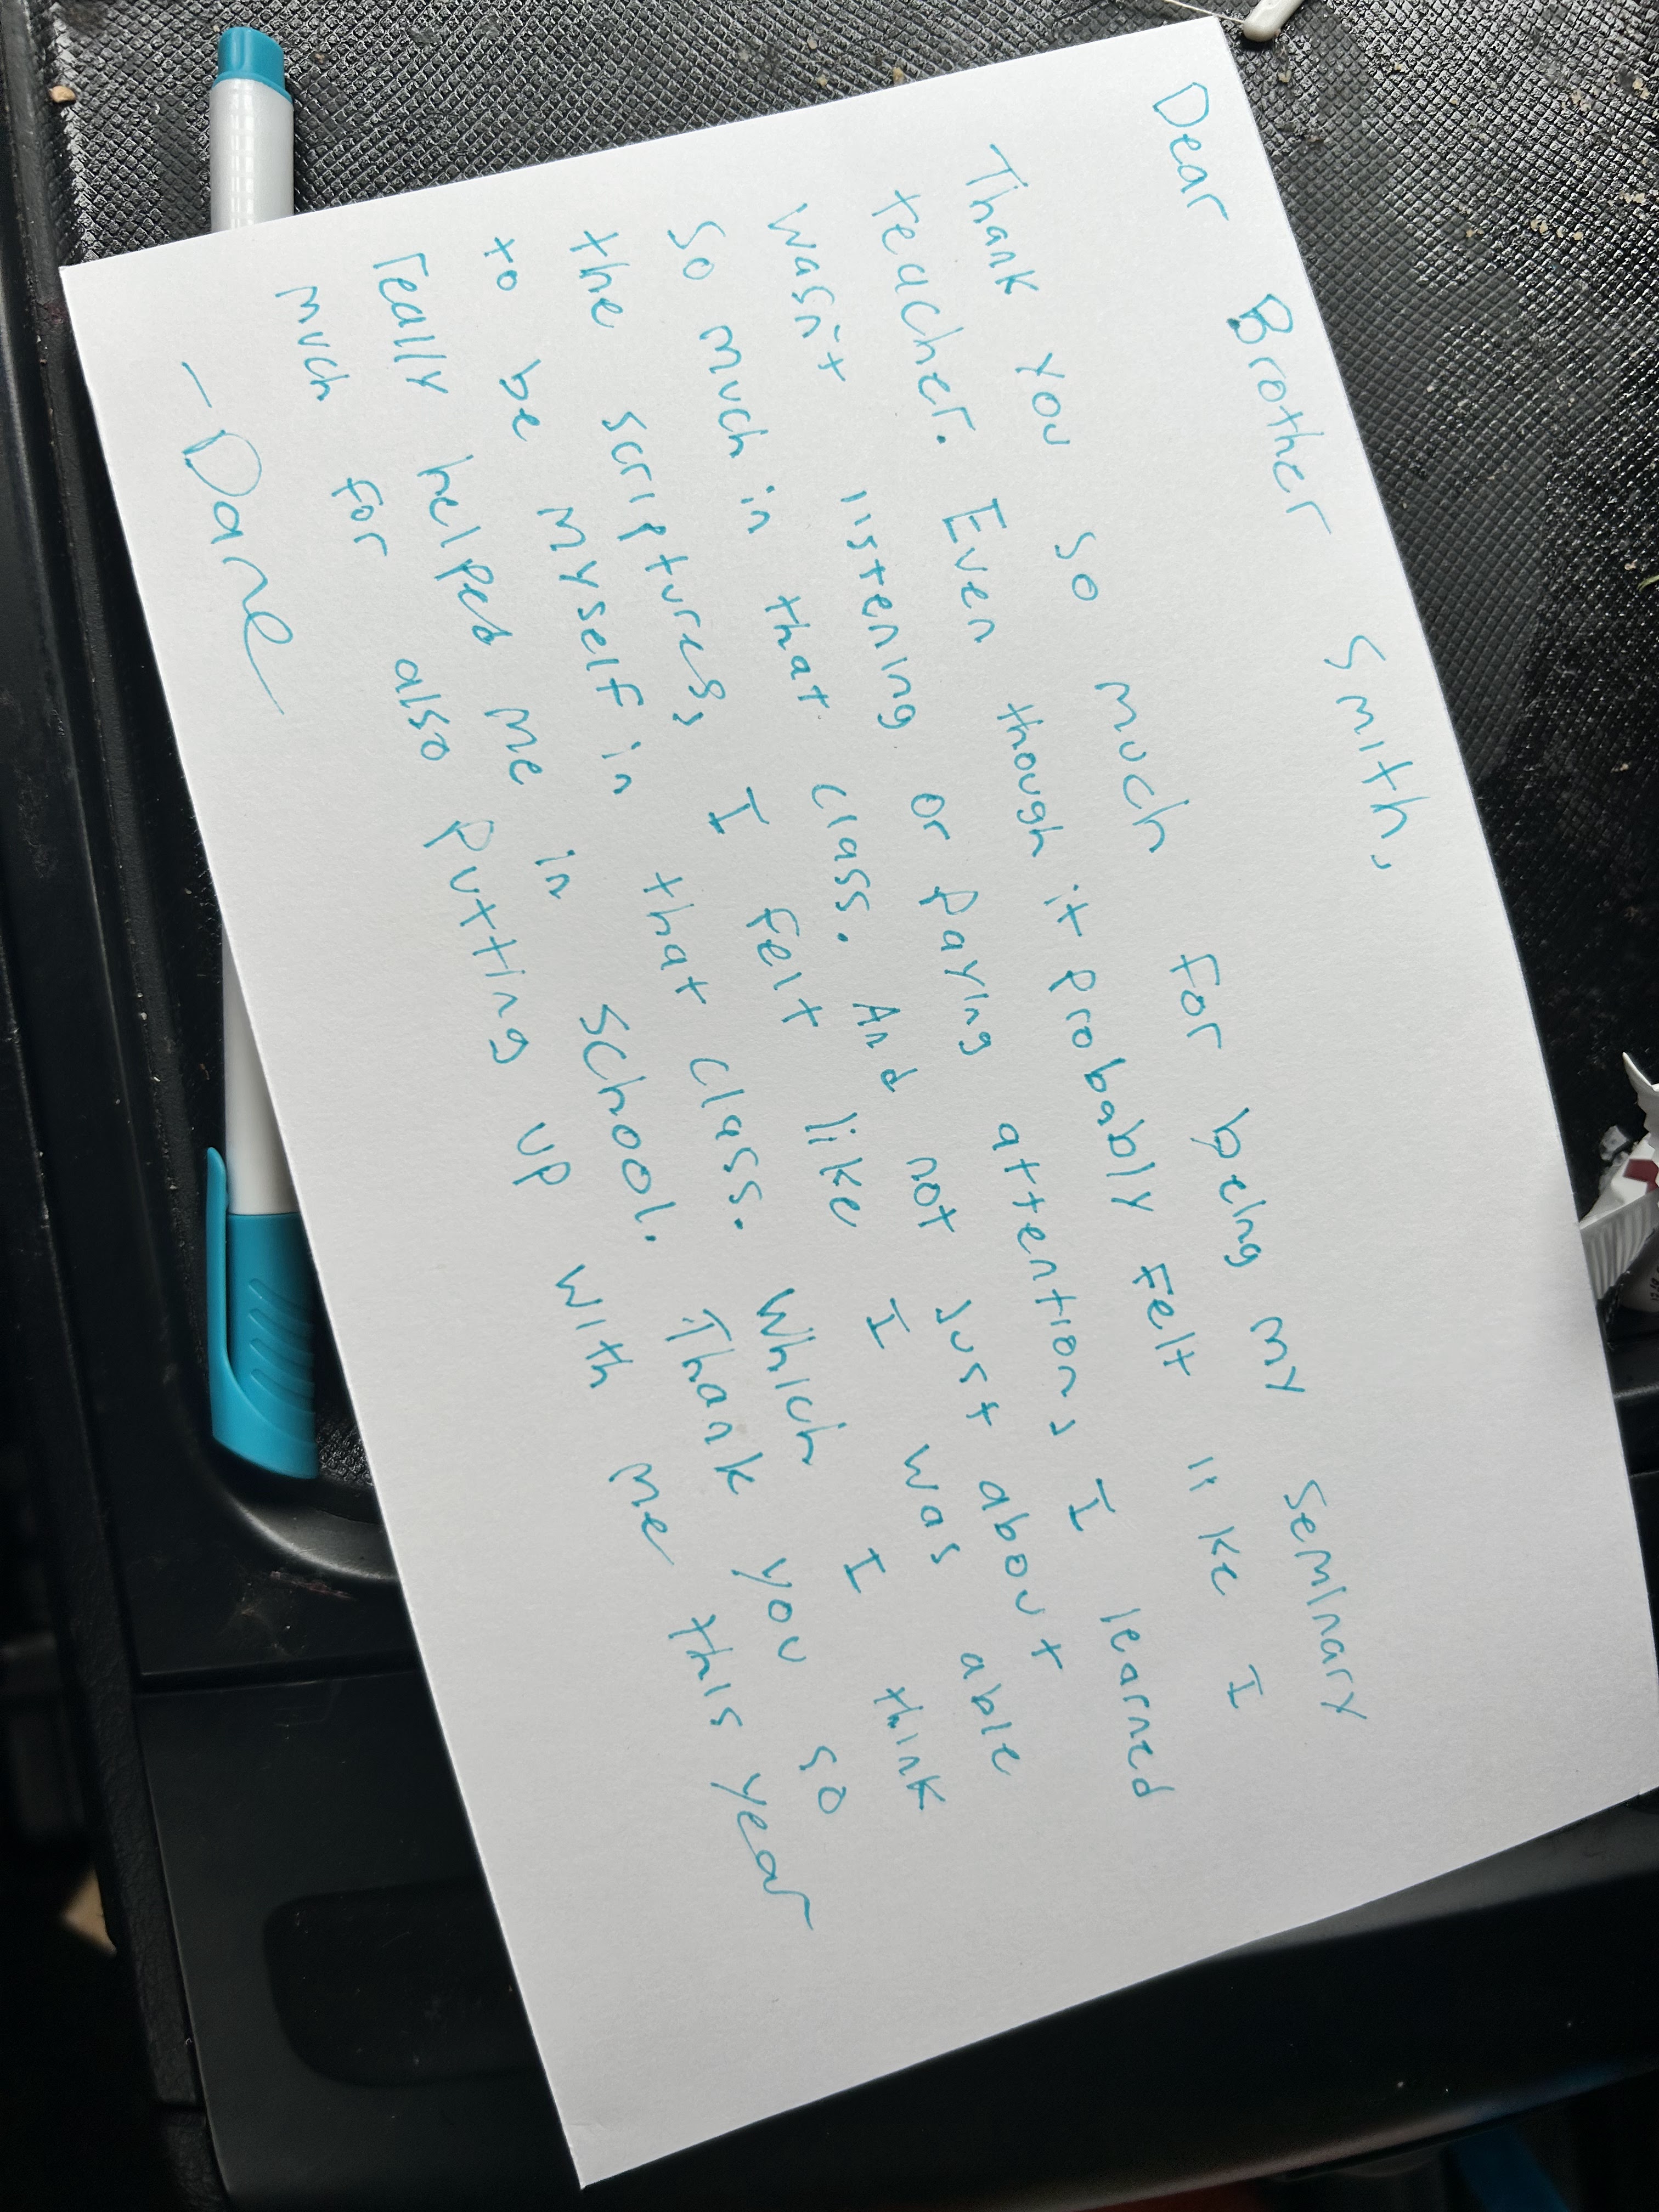 Dear Brother Smith,
Thank you so much for being my Seminary
teacher. Even though it probably felt like I
wasn't listening or paying attention, I learned
so much in that class. And not just about
the scriptures, I felt like I was able
to be myself in that class. Which I think
really helped me in school. Thank you so
much for also putting up with me this year
- Dane